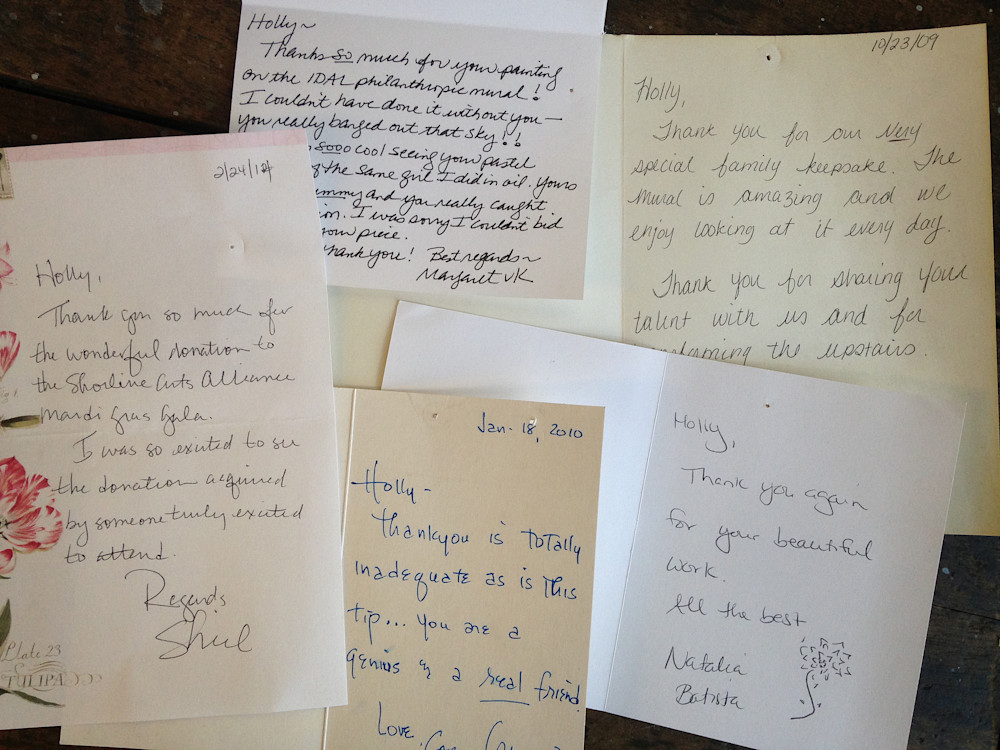 Holly~
Thanks so much for your painting
on the IDAL philanthropic mural!
I couldn't have done it without you —
you really banged out that sky!!
sooo cool seeing your pastel
of the same girl I did in oil. Yours
and you really caught
I was sorry I couldn't bid
your piece.
Thank you! Best regards~
Margaret vK
10/23/09
Holly,
Thank you for our very
special family keepsake. The
mural is amazing and we
enjoy looking at it every day.
Thank you for sharing your
talent with us and for
the upstairs.
2/24/12
Holly,
Thank you so much for
the wonderful donation to
the Shorline Arts Alliance
Mardi Gras Gala.
I was so excited to see
the donation acquired
by someone truly excited
to attend.
Regards
Plate 23
TULIPA
Jan. 18, 2010
Holly -
Thankyou is totally
inadequate as is this
tip... you are a
genius & a real friend
Love,
Holly,
Thank you again
for your beautiful
work.
All the best
Natalia
Batista